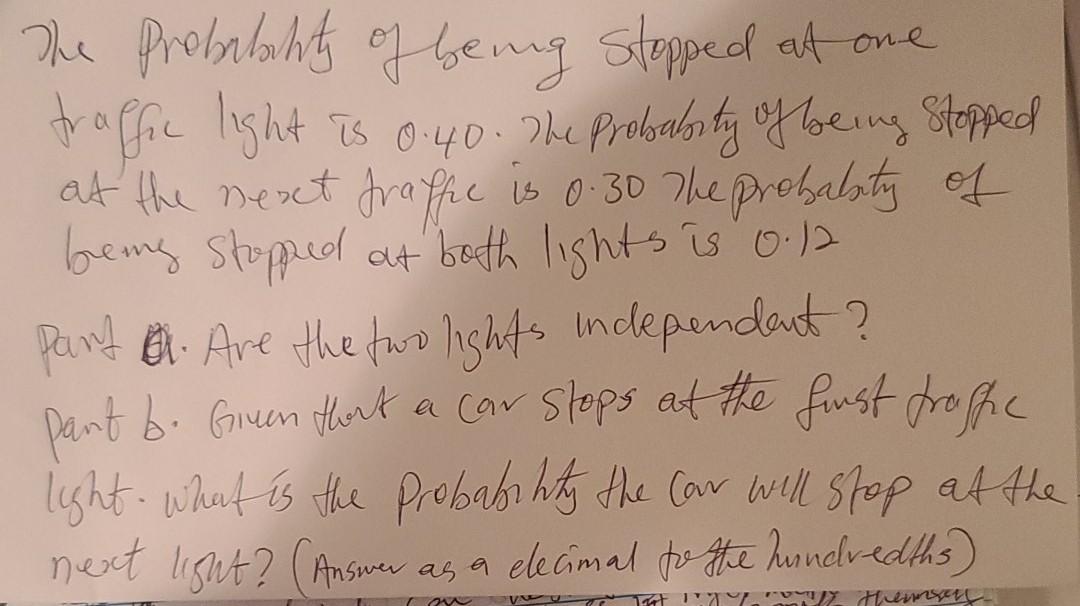 The Probability of being Stopped at one
traffic light is 0.40. The Probability of being Stopped
at the next traffic is 0.30 The probability of
being stopped at both lights is 0.12
Part a. Are the two lights independent?
Part b. Given that a car stops at the first traffic
light. What is the Probability the Car will stop at the
next light? (Answer as a decimal to the hundredths)